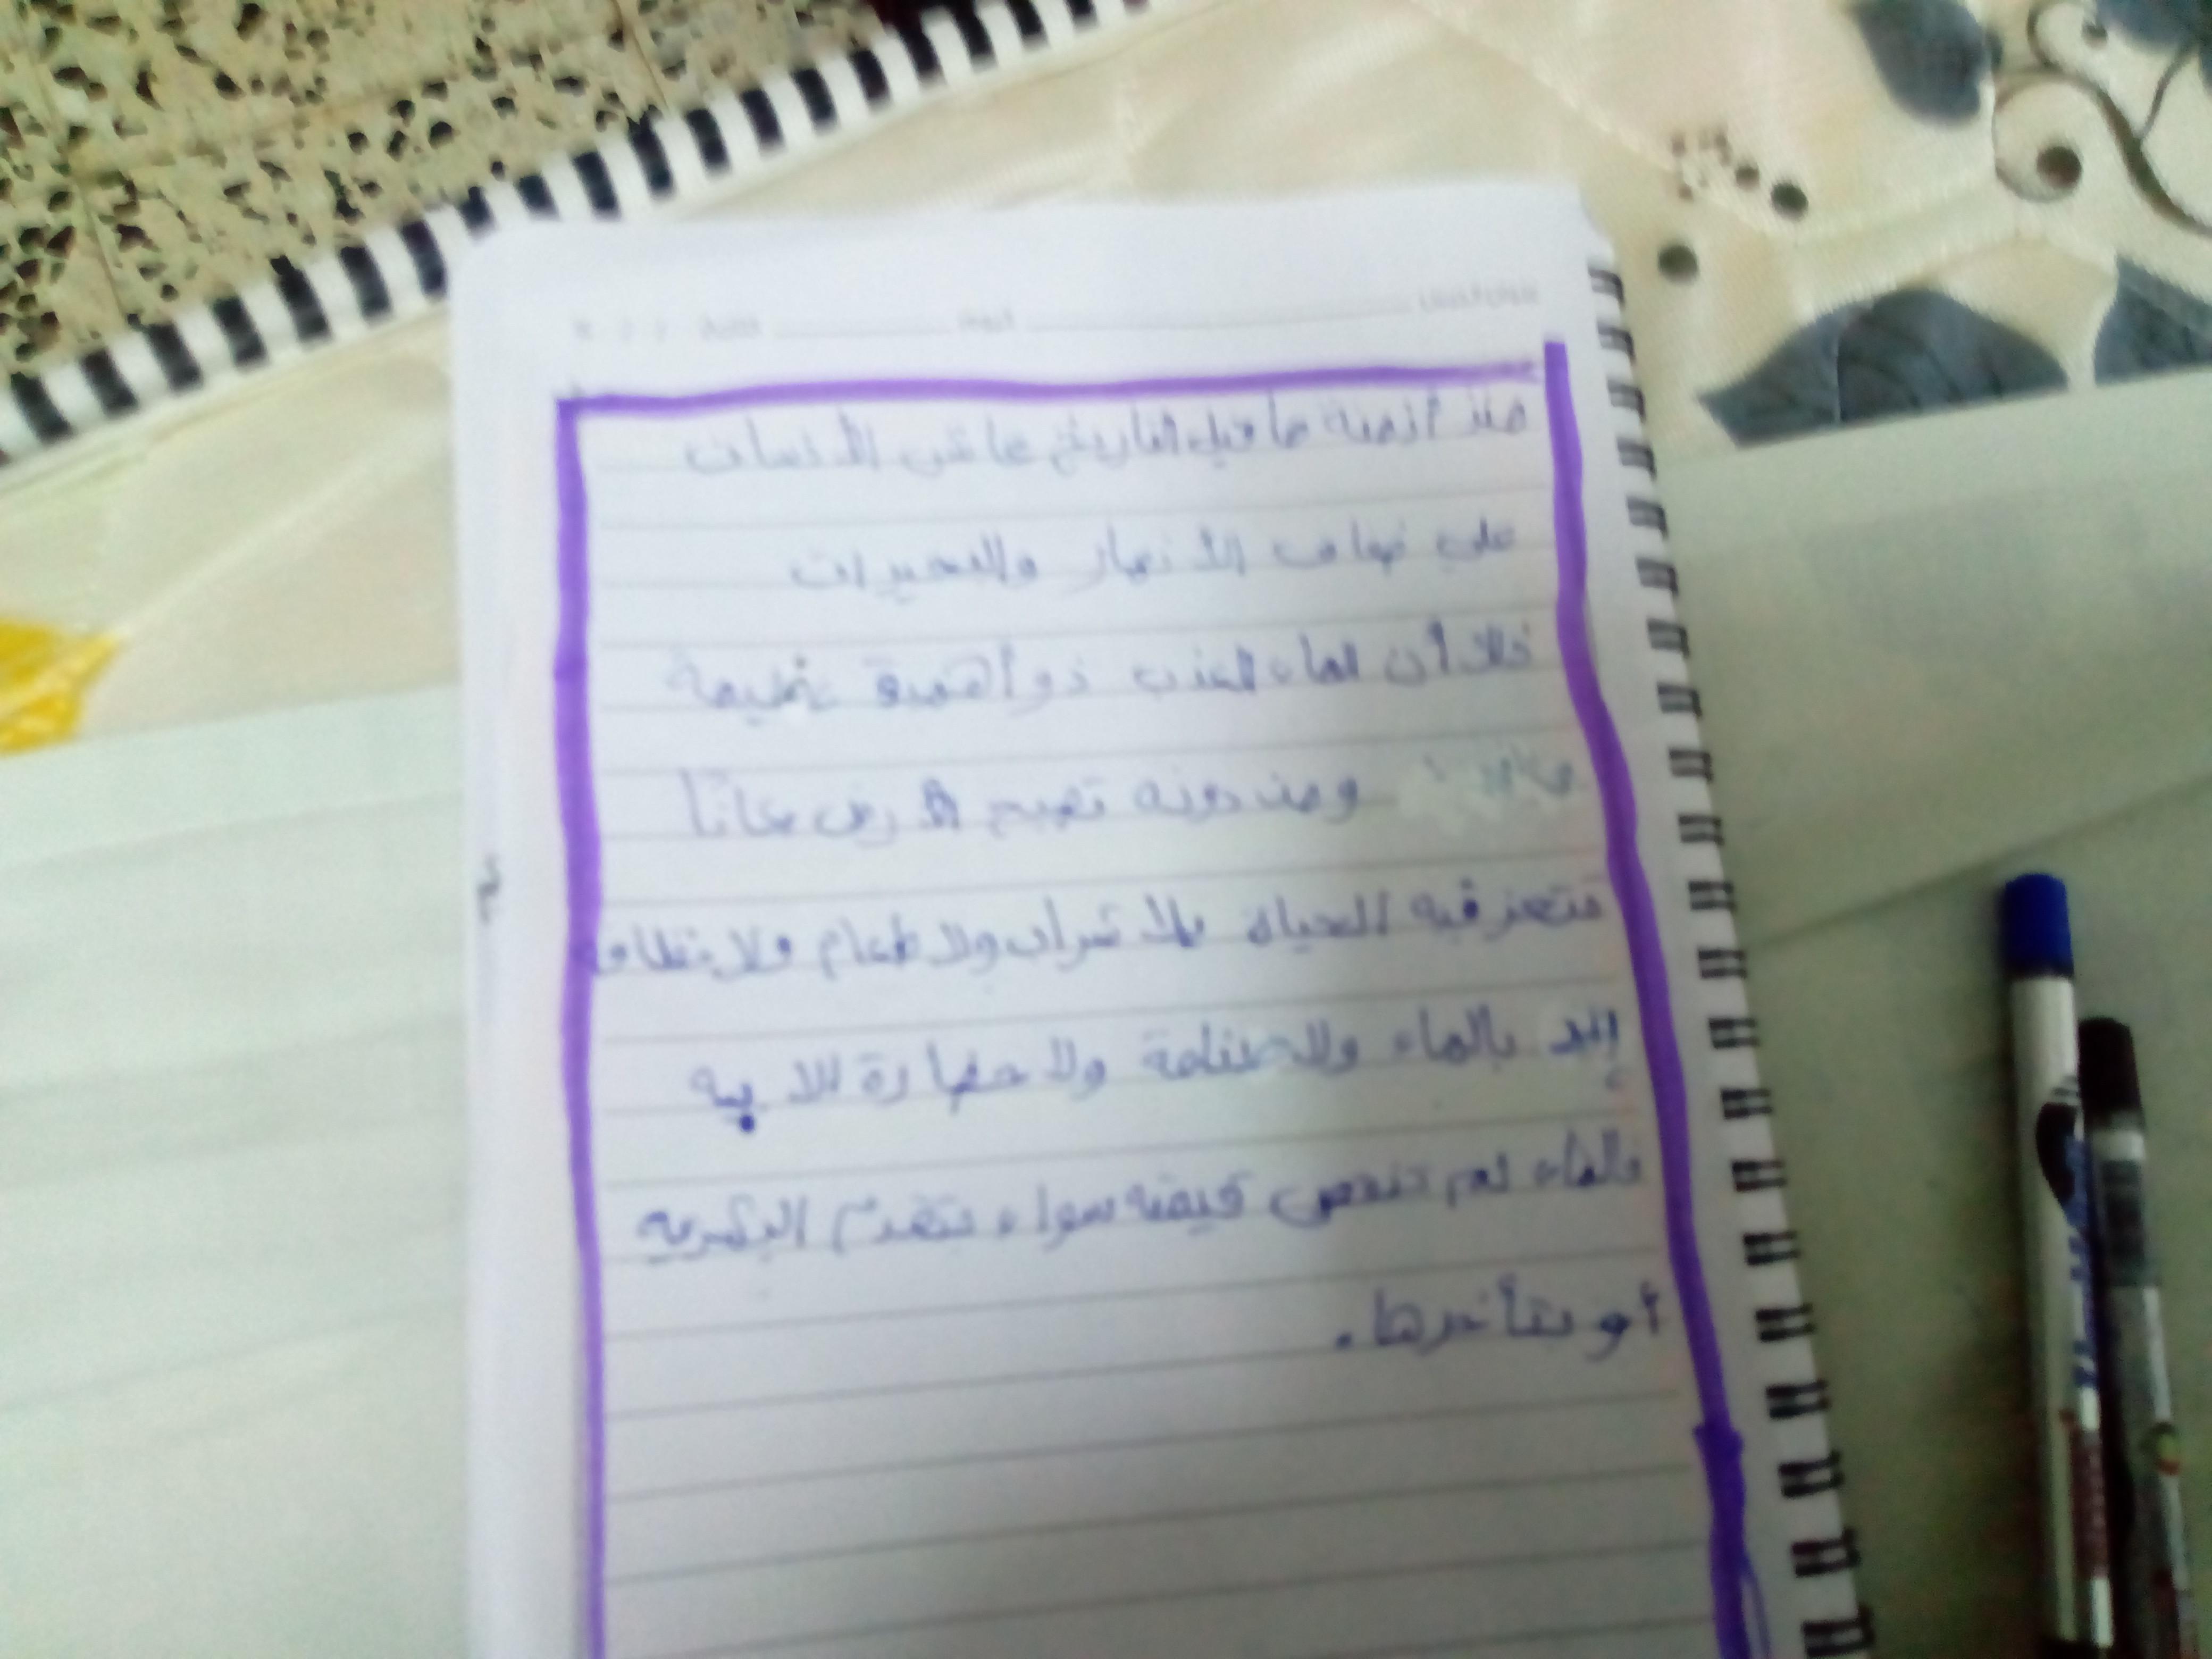 منذ أزمنة ما قبل التاريخ عاش الأنسان
على ضفاف الأنهار والبحيرات
ذلك أن الماء العذب ذو أهمية عظيمة
ومن دونه تصبح الأرض مكانًا
تتعذر فيه الحياة بلا شراب ولا طعام ولا نظاف
إلا بالماء ولا صناعة ولا حضارة إلا به
فالماء لم تنقص قيمته سواء بتقدم البشريه
أو بتأخرها.